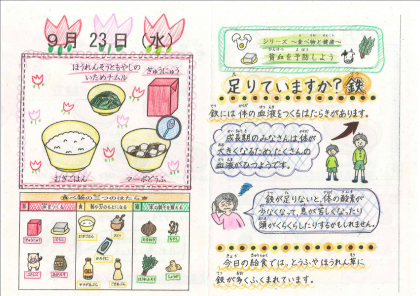 9月23日（水）
ほうれんそうともやしの
いためナムル
ぎゅうにゅう
むぎごはん
マーボどうふ
食べ物の三つのはたらき
シリーズ ～食べ物と健康～
貧血を予防しよう
足りていますか？鉄
鉄には体の血液をつくるはたらきがあります。
成長期のみなさんは体が
大きくなるため、たくさんの
血液がひつようです。
鉄が足りないと、体の酸素が
少なくなって、息が苦しくなったり
頭がくらくらしたりするかもしれません。
今日の給食では、とうふやほうれん草に
鉄が多くふくまれています。